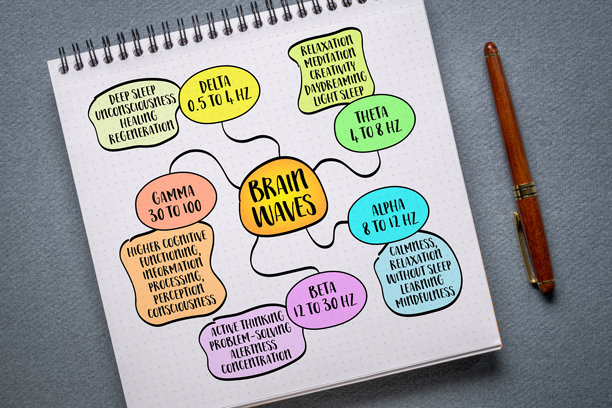 BRAIN
WAVES
DELTA
0.5 TO 4 HZ
DEEP SLEEP
UNCONSCIOUSNESS
HEALING
REGENERATION
THETA
4 TO 8 HZ
RELAXATION
MEDITATION
CREATIVITY
DAYDREAMING
LIGHT SLEEP
ALPHA
8 TO 12 HZ
CALMNESS,
RELAXATION
WITHOUT SLEEP
LEARNING
MINDFULNESS
BETA
12 TO 30 HZ
ACTIVE THINKING
PROBLEM-SOLVING
ALERTNESS
CONCENTRATION
GAMMA
30 TO 100
HIGHER COGNITIVE
FUNCTIONING,
INFORMATION
PROCESSING,
PERCEPTION
CONSCIOUSNESS